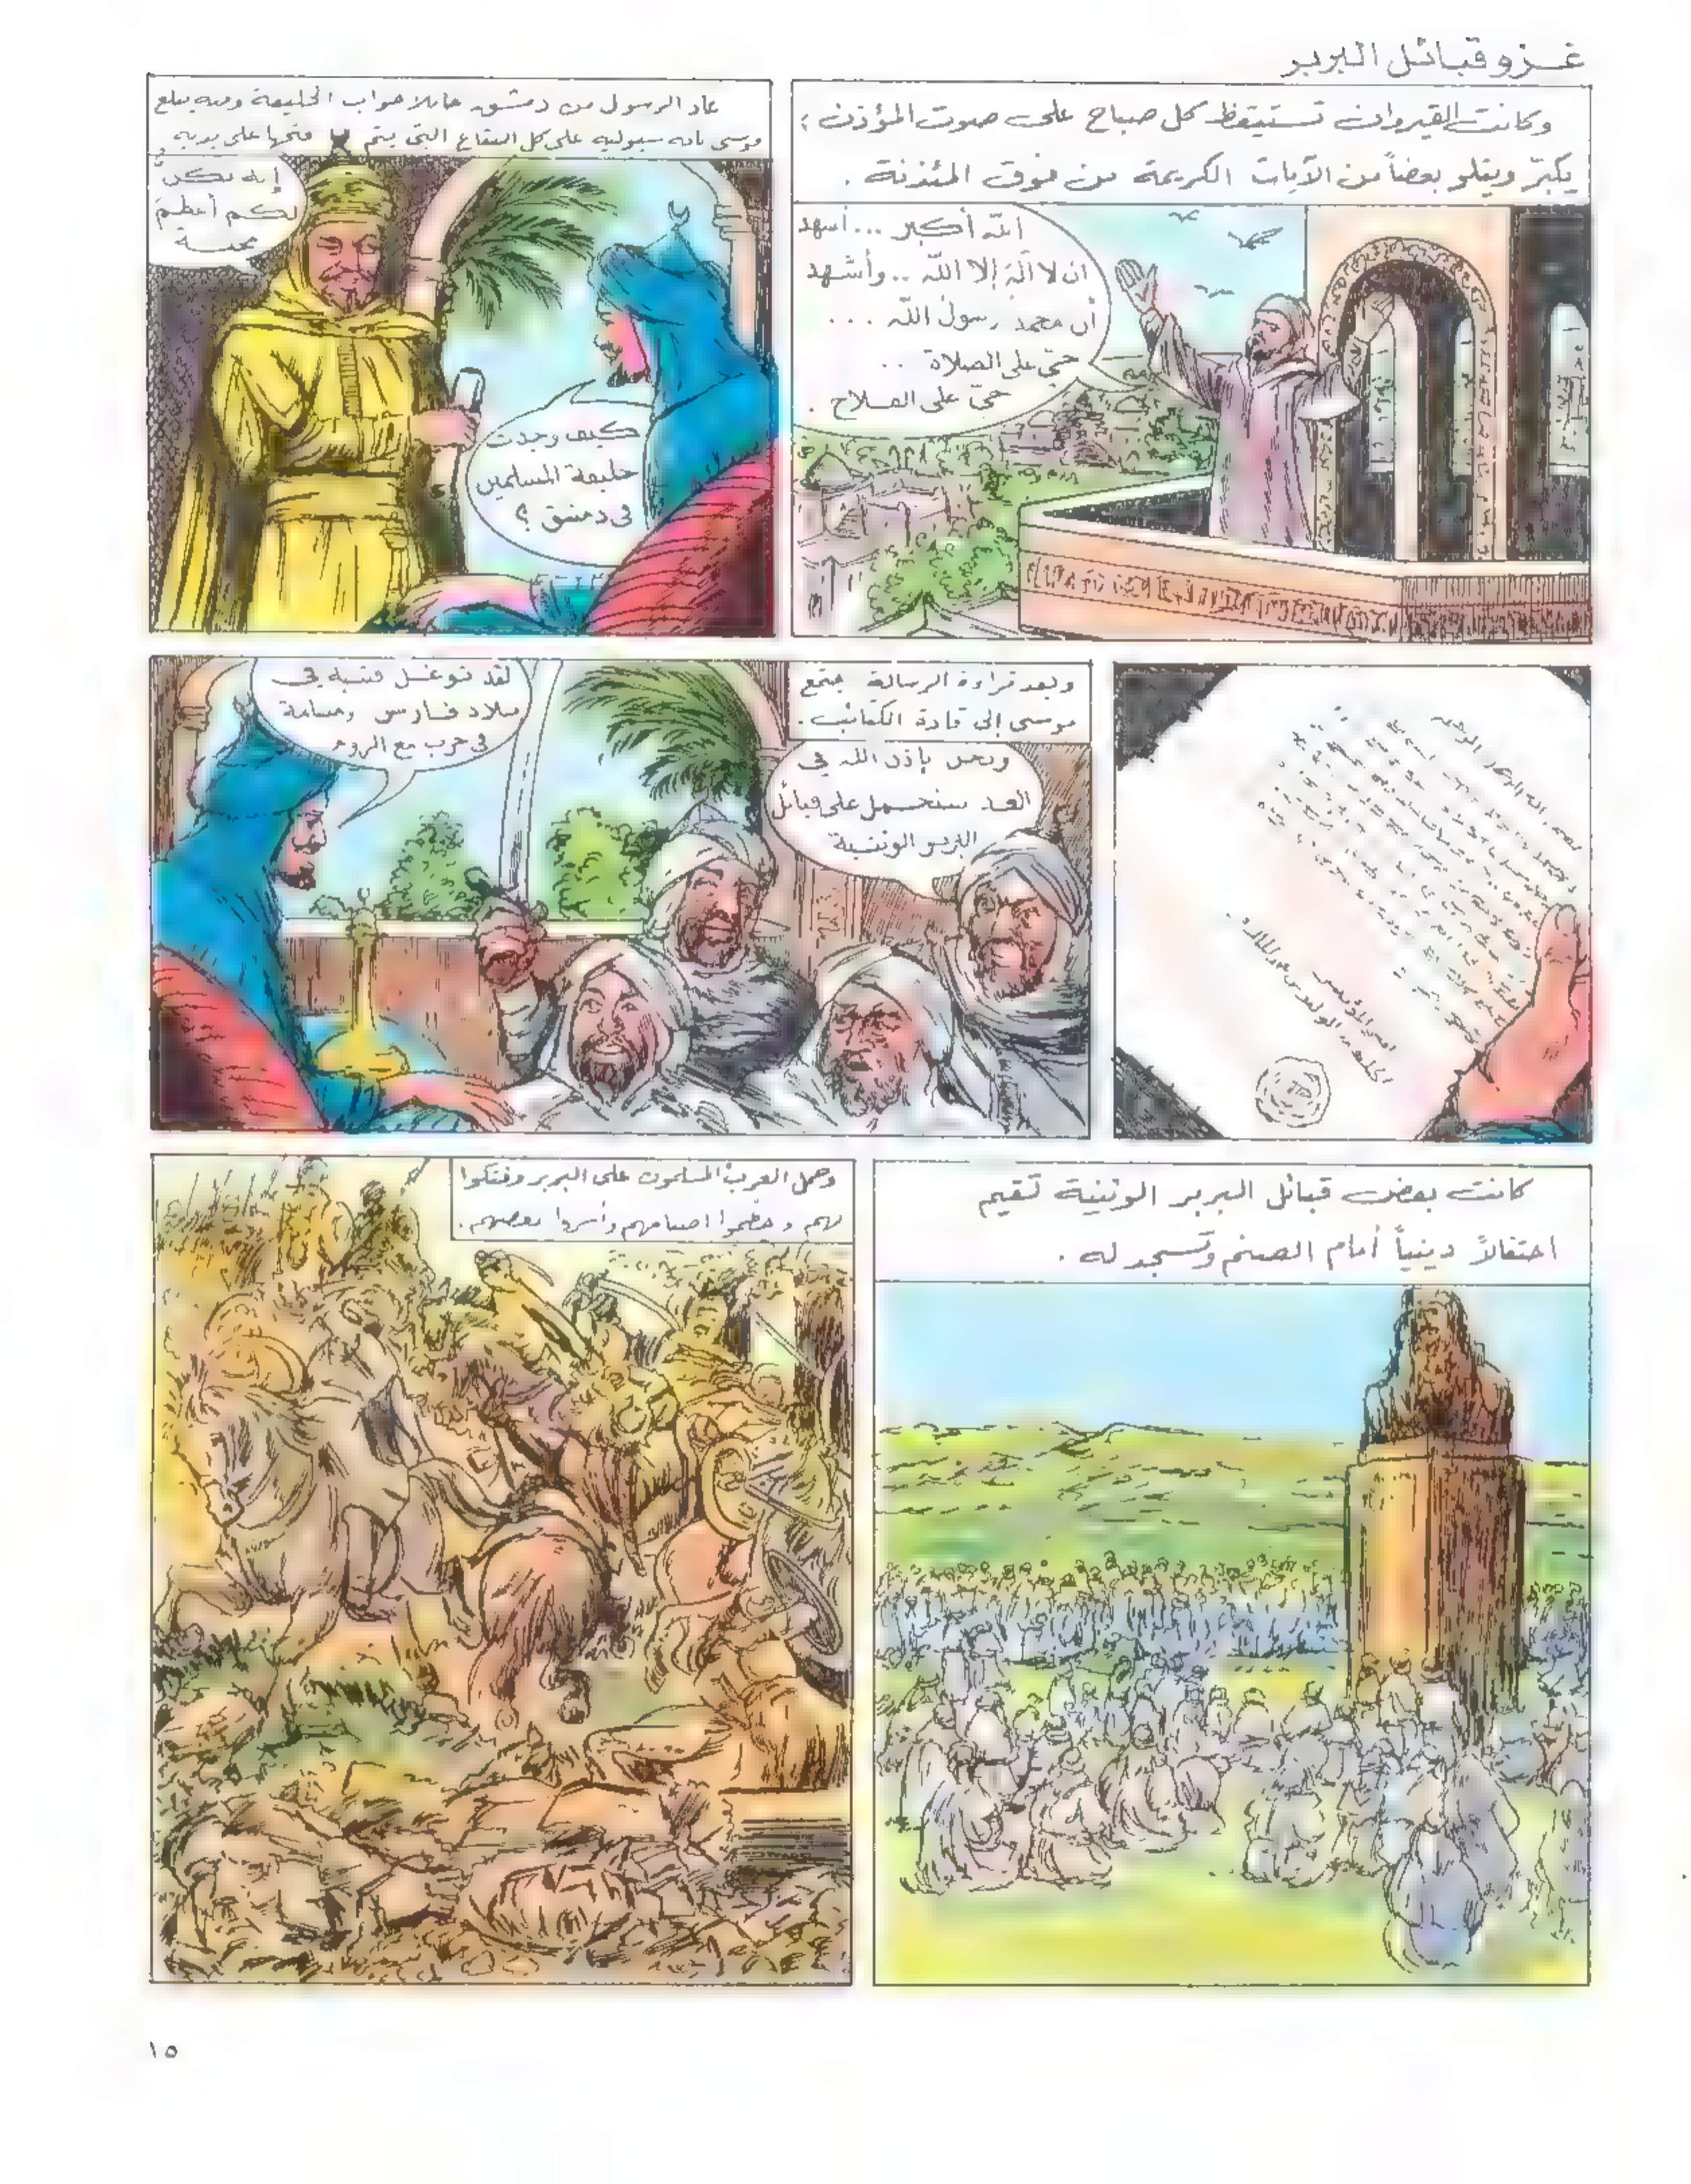 غزو قبائل البربر
وكانت القيروان تستيقظ كل صباح على صوت المؤذن ؛
يكبّر ويتلو بعضاً من الآيات الكريمة من فوق المئذنة .
الله أكبر ... أشهد
ان لا آله إلا الله .. وأشهد
أن محمد رسول الله ...
حيّ على الصلاة ..
حيّ على الفلاح .
عاد الرسول من دمشق حاملا جواب الخليفة وفيه يبلغ
موسى بانه سيوليه على كل البقاع التي يتم فتحها على يديه .
كيف وجدت
خليفة المسلمين
في دمشق ؟
إنه يكنّ
لكم أعظم
محبة
وبعد قراءة الرسالة يجتمع
موسى إلى قادة الكتائب .
لقد توغل قتيبة في
بلاد فارس ومسلمة
في حرب مع الروم
ونحن بإذن الله في
الغد سنحمل على قبائل
البربر الوثنية
أمير المؤمنين
الوليد بن عبد الملك
كانت بعض قبائل البربر الوثنية تقيم
احتفالاً دينياً أمام الصنم وتسجد له .
وحمل العرب المسلمون على البربر وفتكوا
بهم وحطموا اصنامهم وأسروا بعضهم .
١٥